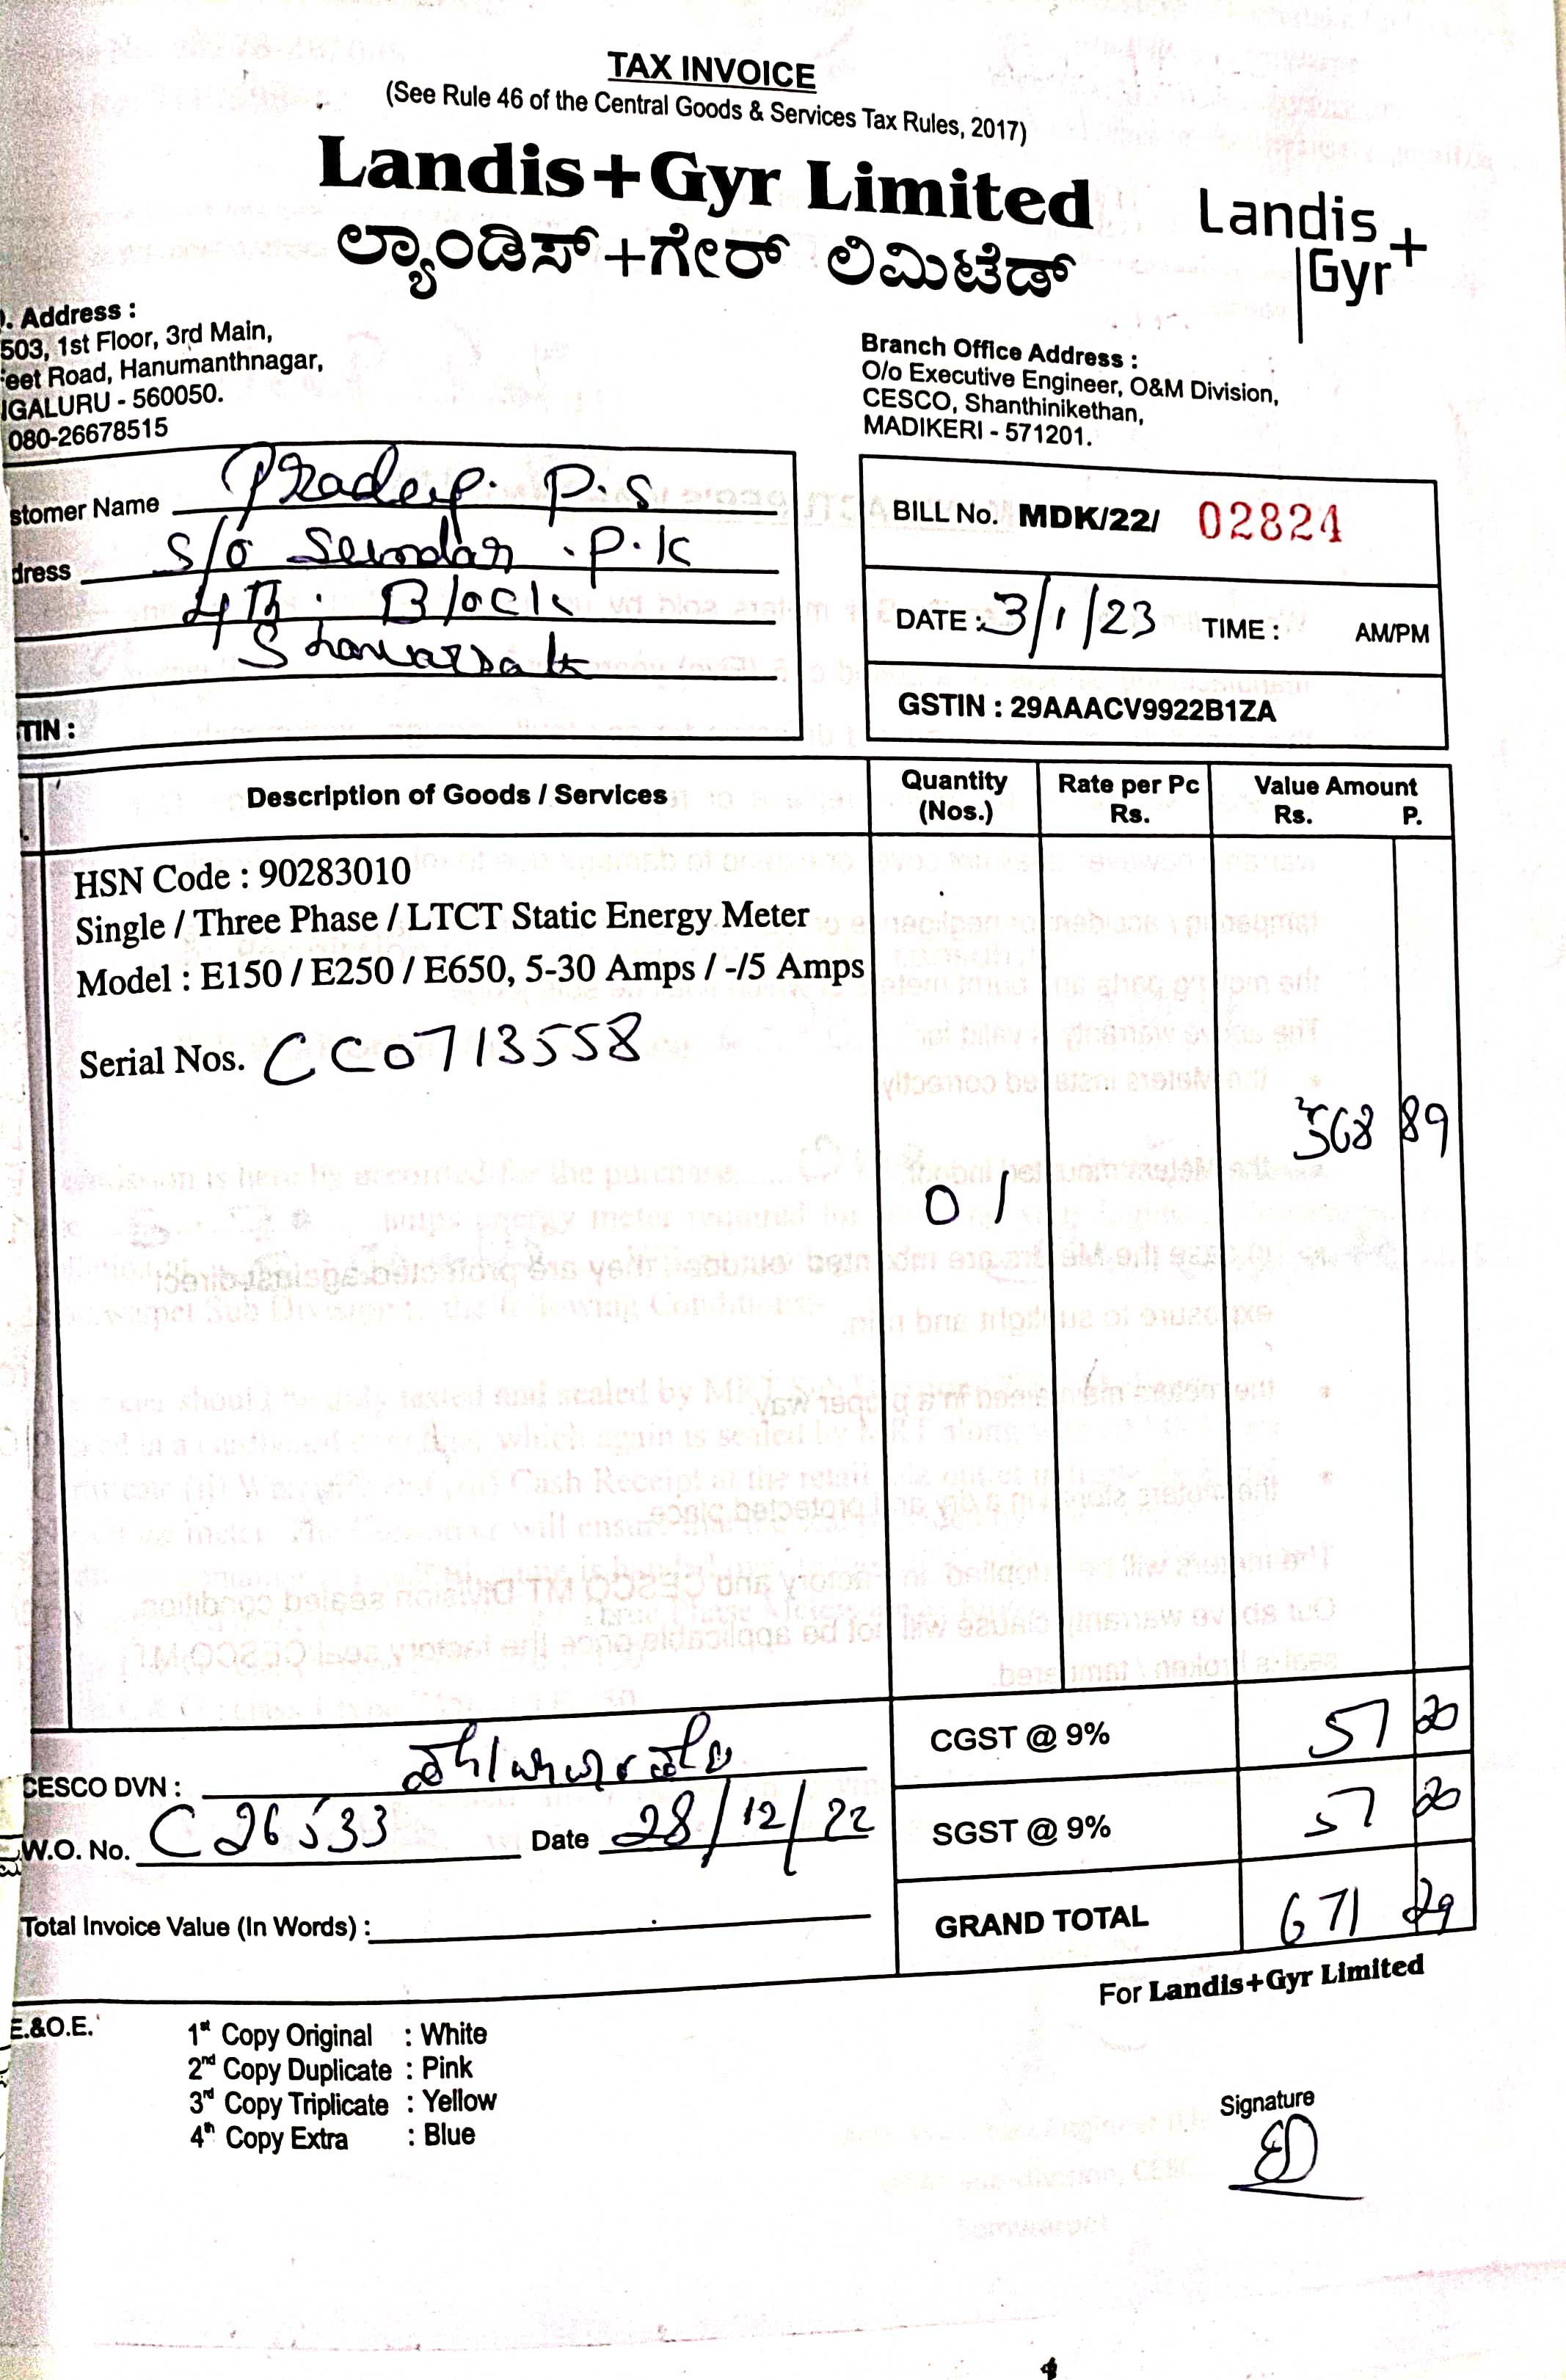 TAX INVOICE
(See Rule 46 of the Central Goods & Services Tax Rules, 2017)
Landis+Gyr Limited
ಲ್ಯಾಂಡಿಸ್+ಗೇರ್ ಲಿಮಿಟೆಡ್
Landis
Gyr+
. Address :
503, 1st Floor, 3rd Main,
eet Road, Hanumanthnagar,
GALURU - 560050.
080-26678515
Branch Office Address :
O/o Executive Engineer, O&M Division,
CESCO, Shanthinikethan,
MADIKERI - 571201.
stomer Name Pradeep. P.S
dress S/o .P.K
4th . Block
TIN :
BILL No. MDK/22/ 02824
DATE : 3/1/23 TIME : AM/PM
GSTIN : 29AAACV9922B1ZA
Description of Goods / Services Quantity (Nos.) Rate per Pc Rs. Value Amount Rs. P.
HSN Code : 90283010
Single / Three Phase / LTCT Static Energy Meter
Model : E150 / E250 / E650, 5-30 Amps / -/5 Amps
Serial Nos. CC0713558
568 89
01
CGST @ 9% 57 20
CESCO DVN :
SGST @ 9% 57 20
W.O. No. C26533 Date 28/12/22
GRAND TOTAL 671 29
Total Invoice Value (In Words) :
For Landis+Gyr Limited
E.&O.E.
1st Copy Original : White
2nd Copy Duplicate : Pink
3rd Copy Triplicate : Yellow
4th Copy Extra : Blue
Signature